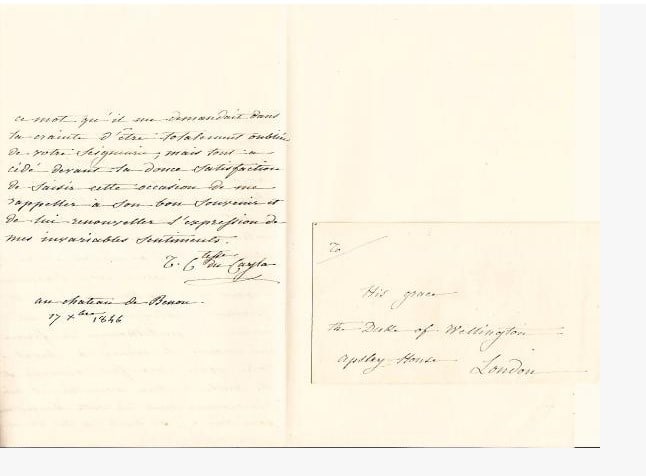 ce mot qu'il me demandait dans
la crainte d'être totalement oubliée
de votre Seigneurie, mais tout a
cédé devant la douce satisfaction
de saisir cette occasion de me
rappeller à son bon souvenir et
de lui renouveller l'expression de
mes invariables sentiments.
Ctesse du Cayla
au chateau de Benon.
17 xbre 1846
To
His grace
the Duke of Wellington
apsley House
London